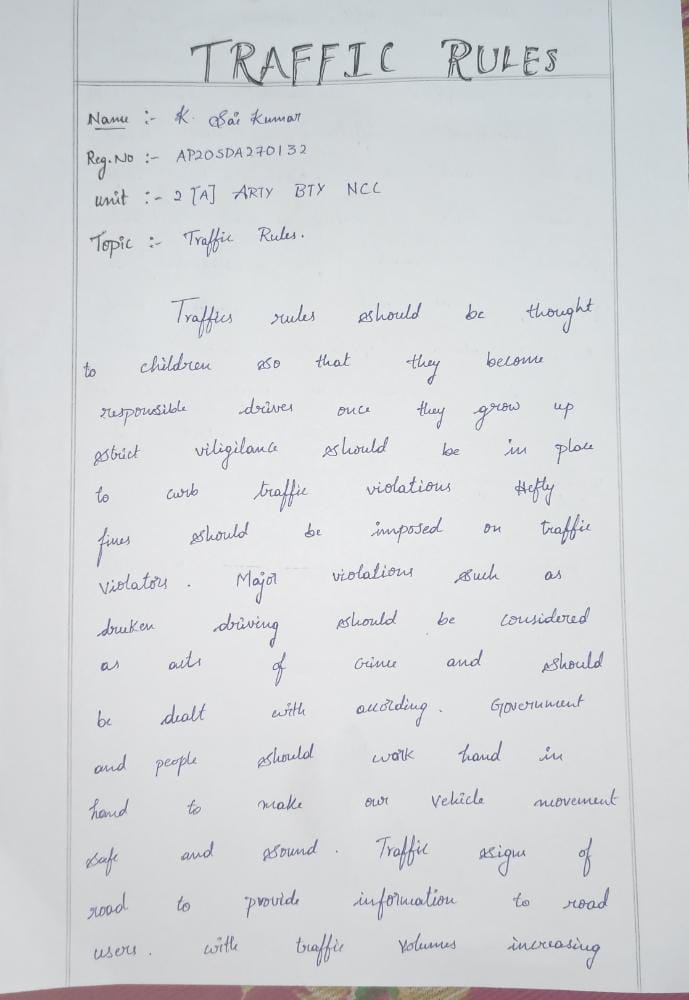 TRAFFIC RULES
Name :- K. Sai Kumar
Reg.No :- AP20SDA270132
unit :- 2 [A] ARTY BTY NCC
Topic :- Traffic Rules.
Traffics rules should be thought
to children so that they become
responsible drives once they grow up
strict viligilance should be in place
to curb traffic violations Hefty
fines should be imposed on traffic
violators. Major violations such as
druken driving should be considered
as acts of crime and should
be dealt with according. Government
and people should work hand in
hand to make our vehicle movement
safe and sound. Traffic signs of
road to provide information to road
users. with traffic volumes increasing